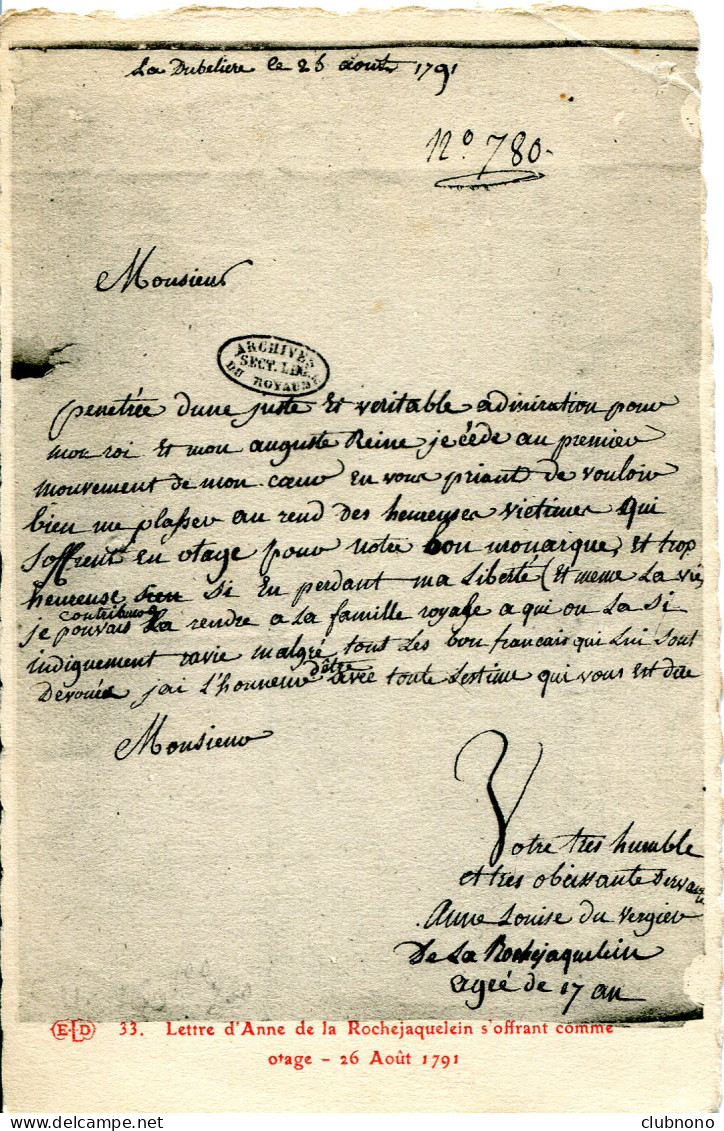 La Dubeliere le 26 aout 1791
N.º 780.
Monsieur
ARCHIVES
SECT. LEG.
DU ROYAUME
penetrée dune juste et veritable admiration pour
mon roi et mon auguste Reine je cède au premier
mouvement de mon cœur en vous priant de vouloir
bien me plasser au rend des heureuses victimes qui
soffrent en otage pour notre bon monarque, et trop
heureuse si en perdant ma Liberté (et meme La vie)
je pouvais contribuer a La rendre a La famille royale a qui on La si
indignement ravie malgré tous Les bon francais qui Lui sont
Devoués jai L'honneur d'être avec toute Lestime qui vous est due
Monsieur
Votre tres humble
et tres obeissante servante
Anne Louise du vergier
De La Rochejaquelein
ageé de 17 an
ELD 33. Lettre d'Anne de la Rochejaquelein s'offrant comme
otage - 26 Août 1791
clubnono